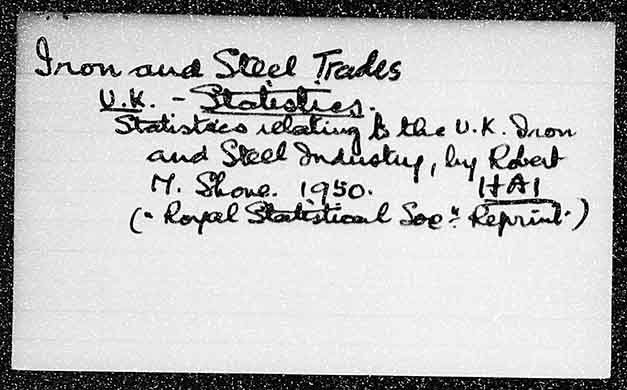 Iron and Steel Trades
U.K. - Statistics.
Statistics relating to the U.K. Iron
and Steel Industry, by Robert
M. Shone. 1950. HA1
(" Royal Statistical Socy. Reprint.")